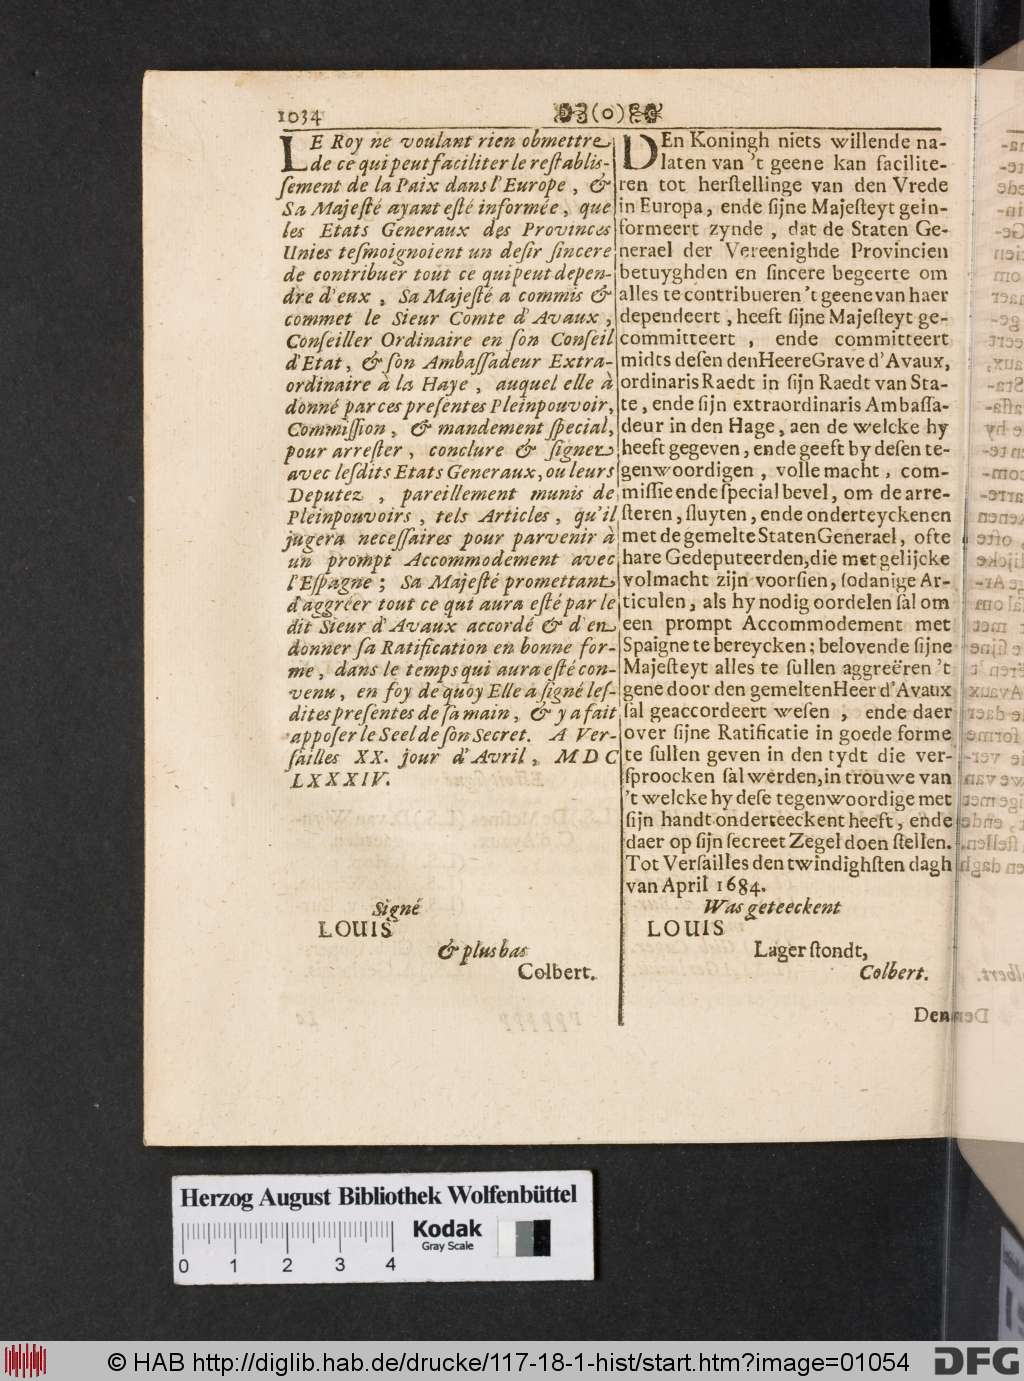 1034
(o)
LE Roy ne voulant rien obmettre
de ce qui peut faciliter le reſtabliſ-
ſement de la Paix dans l'Europe, &
Sa Majeſté ayant eſté informée, que
les Etats Generaux des Provinces
Unies teſmoignoient un deſir ſincere
de contribuer tout ce qui peut depen-
dre d'eux, Sa Majeſté a commis &
commet le Sieur Comte d'Avaux,
Conſeiller Ordinaire en ſon Conſeil
d'Etat, & ſon Ambaſſadeur Extra-
ordinaire à la Haye, auquel elle à
donné par ces preſentes Pleinpouvoir,
Commiſſion, & mandement ſpecial,
pour arreſter, conclure & ſigner
avec leſdits Etats Generaux, ou leurs
Deputez, pareillement munis de
Pleinpouvoirs, tels Articles, qu'il
jugera neceſſaires pour parvenir à
un prompt Accommodement avec
l'Eſpagne; Sa Majeſté promettant
d'aggréer tout ce qui aura eſté par le
dit Sieur d'Avaux accordé & d'en
donner ſa Ratification en bonne for-
me, dans le temps qui aura eſté con-
venu, en foy de quoy Elle a ſigné leſ-
dites preſentes de ſa main, & y a fait
appoſer le Seel de ſon Secret. A Ver-
ſailles XX. jour d'Avril, MDC
LXXXIV.
Signé
LOUIS
& plus bas
Colbert.
DEn Koningh niets willende na-
laten van 't geene kan facilite-
ren tot herſtellinge van den Vrede
in Europa, ende ſijne Majeſteyt gein-
formeert zynde, dat de Staten Ge-
nerael der Vereenighde Provincien
betuyghden en ſincere begeerte om
alles te contribueren 't geene van haer
dependeert, heeft ſijne Majeſteyt ge-
committeert, ende committeert
midts deſen den Heere Grave d'Avaux,
ordinaris Raedt in ſijn Raedt van Sta-
te, ende ſijn extraordinaris Ambaſſa-
deur in den Hage, aen de welcke hy
heeft gegeven, ende geeft by deſen te-
genwoordigen, volle macht, com-
miſſie ende ſpecial bevel, om de arre-
ſteren, ſluyten, ende onderteyckenen
met de gemelte Staten Generael, ofte
hare Gedeputeerden, die met gelijcke
volmacht zijn voorſien, ſodanige Ar-
ticulen, als hy nodig oordelen ſal om
een prompt Accommodement met
Spaigne te bereycken; belovende ſijne
Majeſteyt alles te ſullen aggreëren 't
gene door den gemelten Heer d'Avaux
ſal geaccordeert weſen, ende daer
over ſijne Ratificatie in goede forme
te ſullen geven in den tydt die ver-
ſproocken ſal werden, in trouwe van
't welcke hy deſe tegenwoordige met
ſijn handt onderteeckent heeft, ende
daer op ſijn ſecreet Zegel doen ſtellen.
Tot Verſailles den twindighſten dagh
van April 1684.
Was geteeckent
LOUIS
Lager ſtondt,
Colbert.
Den
Herzog August Bibliothek Wolfenbüttel
Kodak
Gray Scale
0 1 2 3 4
© HAB http://diglib.hab.de/drucke/117-18-1-hist/start.htm?image=01054
DFG